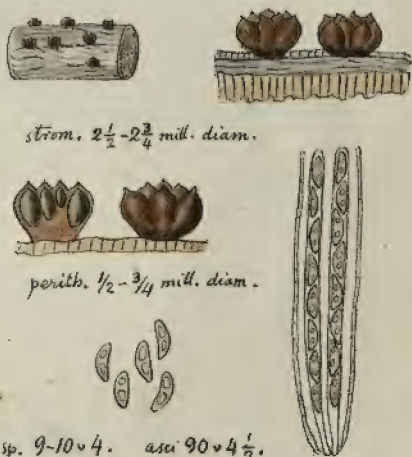 strom. 2½-2¾ mill. diam.
perith. ½-¾ mill. diam.
sp. 9-10 v 4. asci 90 v 4½.